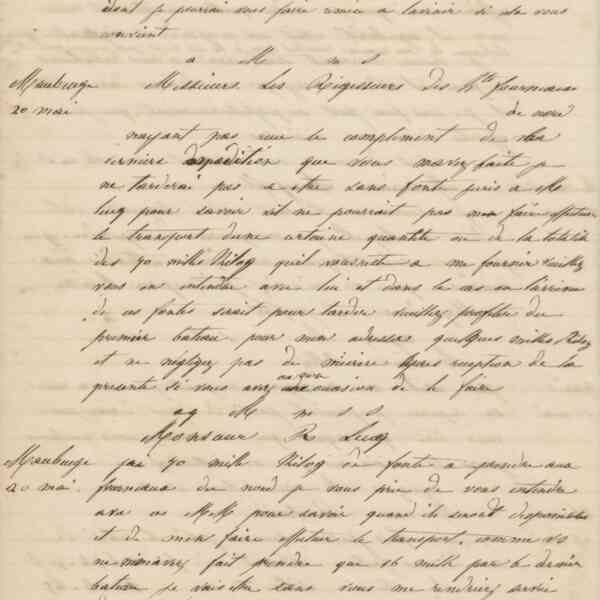 dont je pourrai vous faire remise a lavoir si cela vous
convient
a M m s
Maubeuge Messieurs Les Régisseurs des hts fourneaux
20 mai du nord
nayant pas recu le complement de
derniere expedition que vous mavez faite je
ne tarderai pas a etre sans fonte jecris a Mr
Lucq pour savoir sil ne pourrait pas men faire effectuer
le transport dune certaine quantité ou de la totalité
des 70 mille Kilog quil vous reste a me fournir veuillez
vous en entendre avec lui et dans le cas ou larrivée
de ces fontes serait pour tarder veuillez profiter du
premier bateau pour men adresser quelques milles Kilog
et ne negligez pas de mecrire apres reception de la
presente si vous avez occasion de le faire
ag M m s s
Monsieur R Lucq
Maubeuge jai 70 mille Kilog de fonte a prendre aux
20 mai fourneaux du nord je vous prie de vous entendre
avec ces MM pour savoir quand ils seront disponibles
et de men faire effectuer le transport. comme vs
ne menavez fait prendre que 16 mille par le dernier
bateau je vais etre sans vous me rendriez service